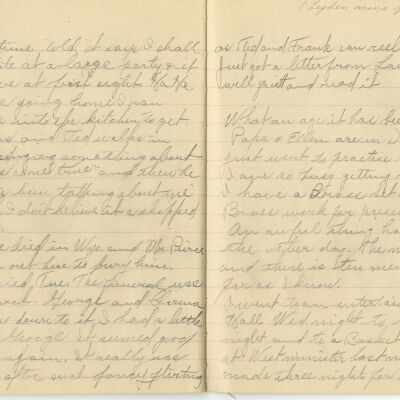 time told, It says I shall
te at a large party & if
ve at first sight Ha Ha.
s going home I ran
e into the kitchen to get
and Ted walks in
singing something about
some time" and then he
been talking about
I don't believe it skipped
e died in Wyo. and Mr. Pierce
out here to bury him.
ried, Tues. The funeral was
George and
down to it, I had a little
George. It seemed good
again. It really was
after such fancy flirting
(Leyden mine
as Ted and Frank can
Just got a letter from
will quit and read it
What an age it has be
Papa & Ellen are in
just went to practise
I am so busy getting
I have a Brass set
Brass work for
An awful thing ha
the other day. The m
and there is ten me
far as I know.
I went to an
Hall Wed night, to
night, and to a Basket
at Westminster last
made three nights for